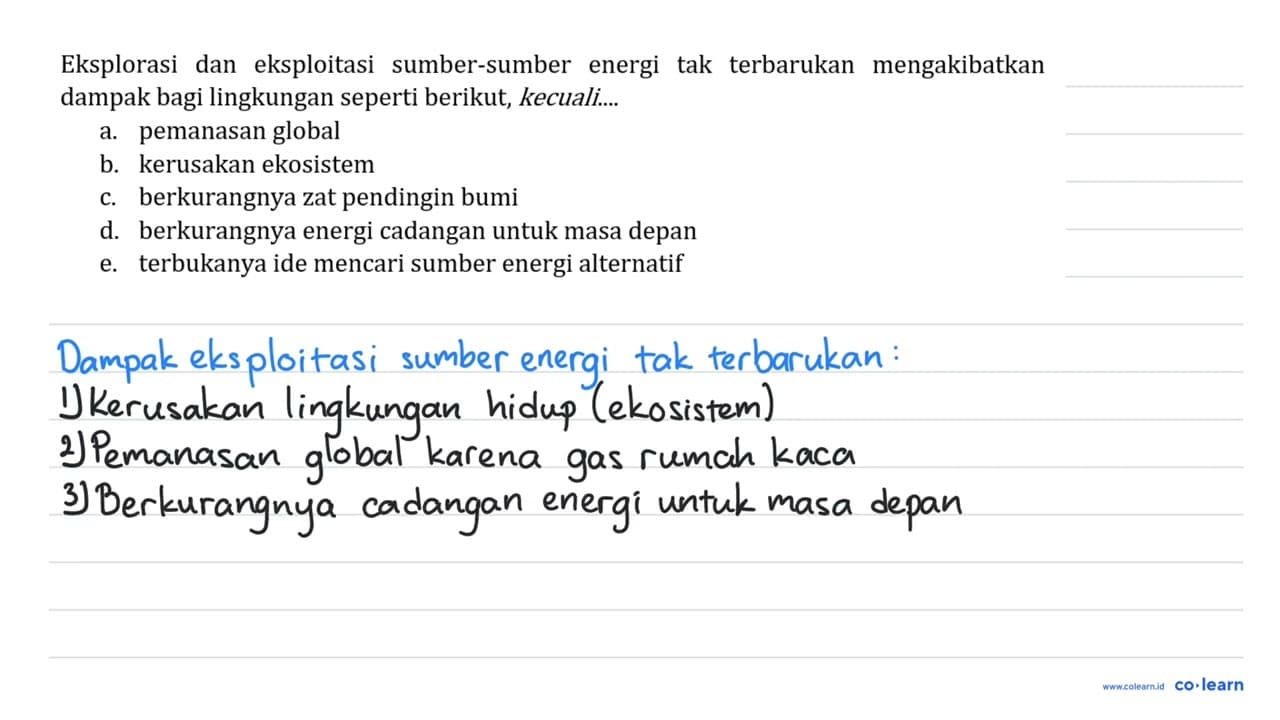 Eksplorasi dan eksploitasi sumber-sumber energi tak terbarukan mengakibatkan
dampak bagi lingkungan seperti berikut, kecuali....
a. pemanasan global
b. kerusakan ekosistem
c. berkurangnya zat pendingin bumi
d. berkurangnya energi cadangan untuk masa depan
e. terbukanya ide mencari sumber energi alternatif
Dampak eksploitasi sumber energi tak terbarukan :
1) Kerusakan lingkungan hidup (ekosistem)
2) Pemanasan global karena gas rumah kaca
3) Berkurangnya cadangan energi untuk masa depan
www.colearn.id co·learn